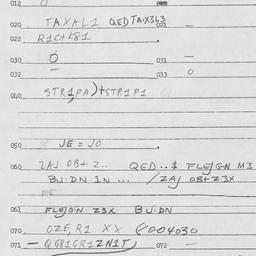 012 0
020 TAXAL1 QED TAX3L3 021 —
022 R1C+K81
030 0 031 —
032 — 033 0
040 STR1PA)+STR1P1
050 JE = JO
060 ZAJ 0B+2.. QED..$ FLEJGN M3
BU.DN 1N ... /ZAJ 0B+Z3X
061 FLEJGN Z3X BU.DN
070 OZE,R1 XX E004030
071 — QG81GR1ZN1T) 072 —